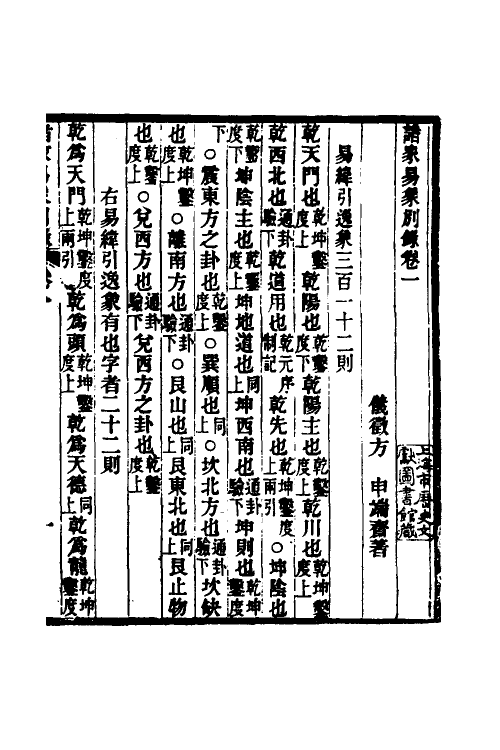 諸家易象別錄卷一
儀徵方　申端齋著
上海市歷史文
獻圖書館藏
易緯引逸象三百一十二則
乾天門也乾坤鑿度上乾陽也乾鑿度下乾陽主也乾鑿度上乾川也乾坤鑿度上
乾西北也通卦驗下乾道用也乾元序制記乾先也乾坤鑿度上兩引○坤陰也
乾鑿度下坤陰主也乾鑿度上坤地道也同上坤西南也通卦驗下坤則也乾坤鑿度
下○震東方之卦也乾鑿度上○巽順也同上○坎北方也通卦驗下坎缺
也乾坤鑿度上○離南方也通卦驗下○艮山也同上艮東北也同上艮止物
也乾鑿度上○兌西方也通卦驗下兌西方之卦也乾鑿度上
右易緯引逸象有也字者二十二則
乾爲天門乾坤鑿度上兩引乾爲頭乾坤鑿度上乾爲天德同上乾爲龍乾坤鑿度